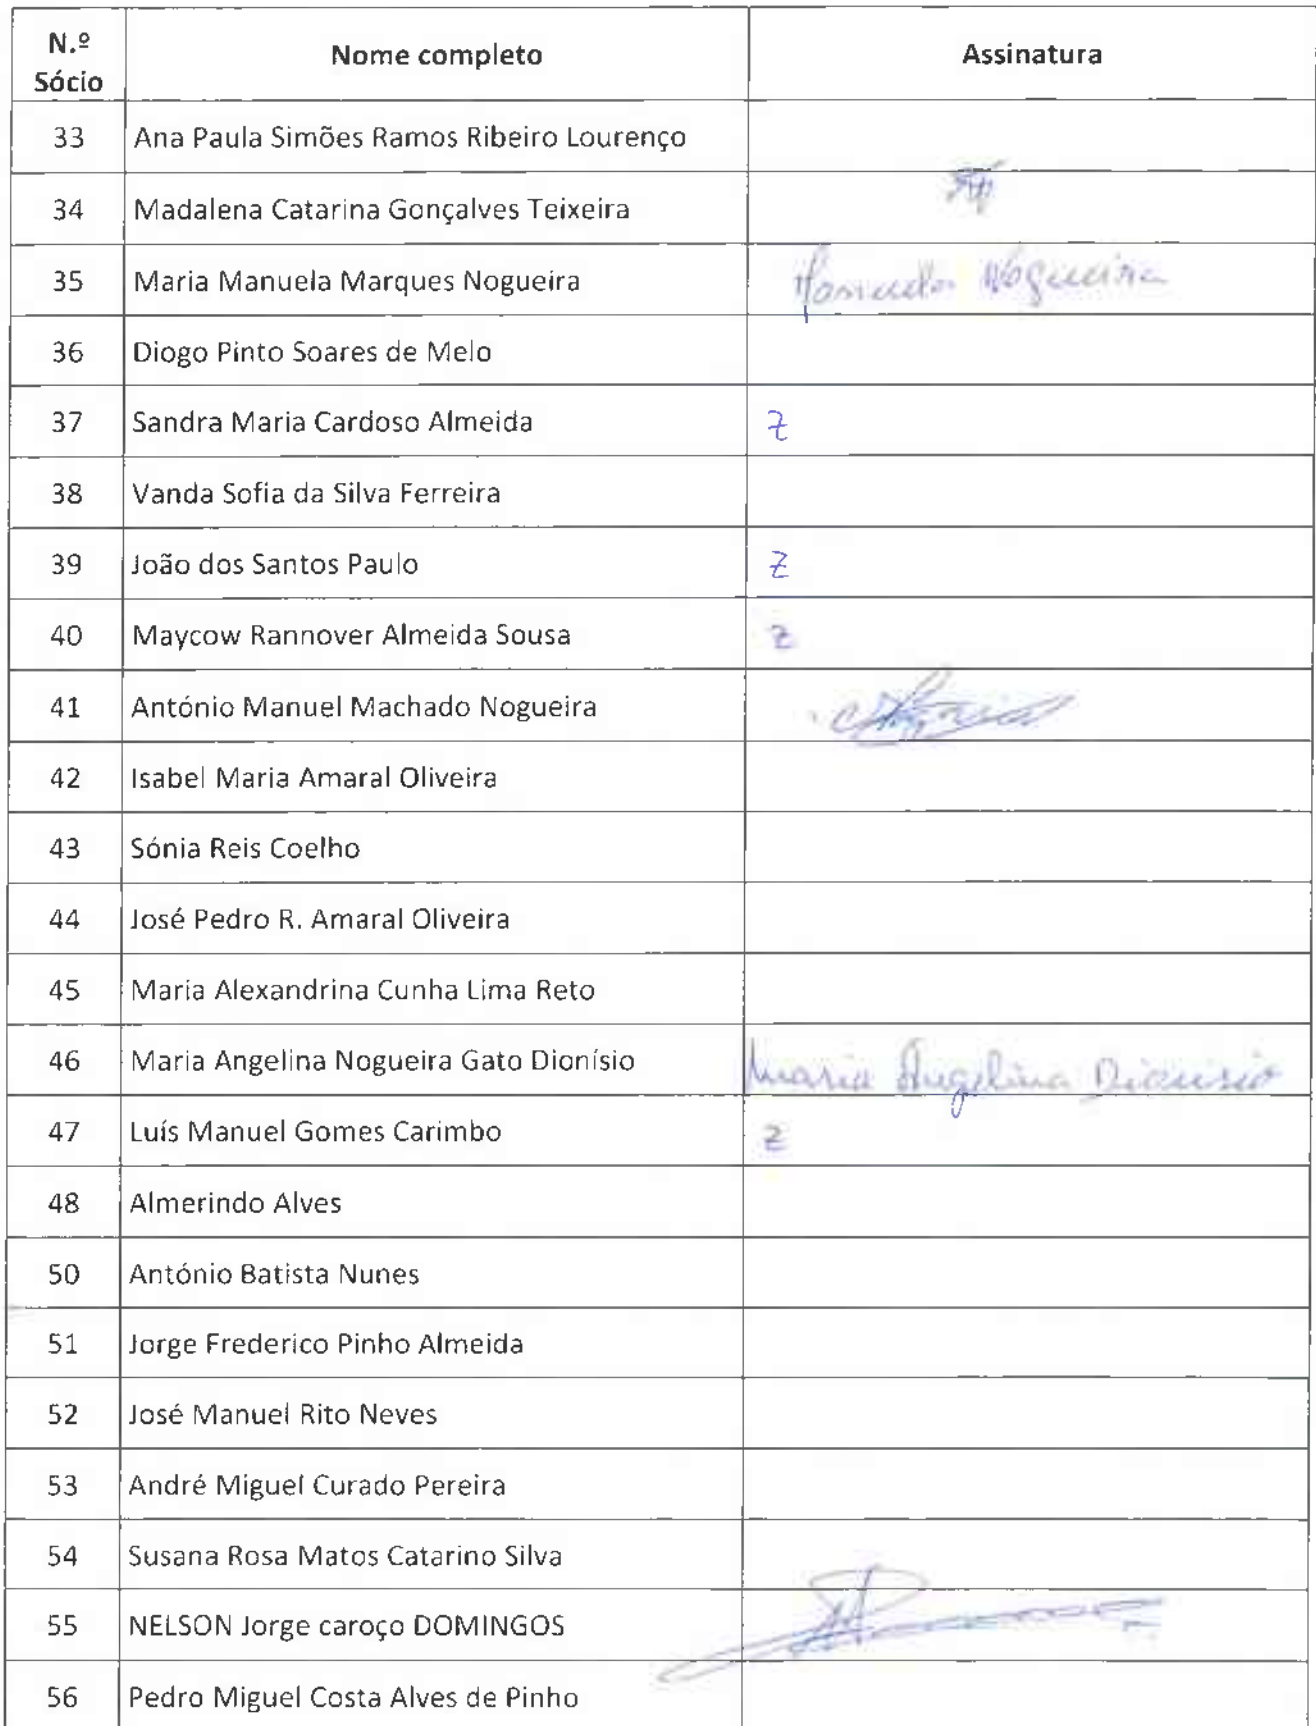 N.º Sócio Nome completo Assinatura
33 Ana Paula Simões Ramos Ribeiro Lourenço
34 Madalena Catarina Gonçalves Teixeira
35 Maria Manuela Marques Nogueira Manuela Nogueira
36 Diogo Pinto Soares de Melo
37 Sandra Maria Cardoso Almeida Z
38 Vanda Sofia da Silva Ferreira
39 João dos Santos Paulo Z
40 Maycow Rannover Almeida Sousa Z
41 António Manuel Machado Nogueira
42 Isabel Maria Amaral Oliveira
43 Sónia Reis Coelho
44 José Pedro R. Amaral Oliveira
45 Maria Alexandrina Cunha Lima Reto
46 Maria Angelina Nogueira Gato Dionísio Maria Angelina Dionisio
47 Luís Manuel Gomes Carimbo Z
48 Almerindo Alves
50 António Batista Nunes
51 Jorge Frederico Pinho Almeida
52 José Manuel Rito Neves
53 André Miguel Curado Pereira
54 Susana Rosa Matos Catarino Silva
55 NELSON Jorge caroço DOMINGOS
56 Pedro Miguel Costa Alves de Pinho